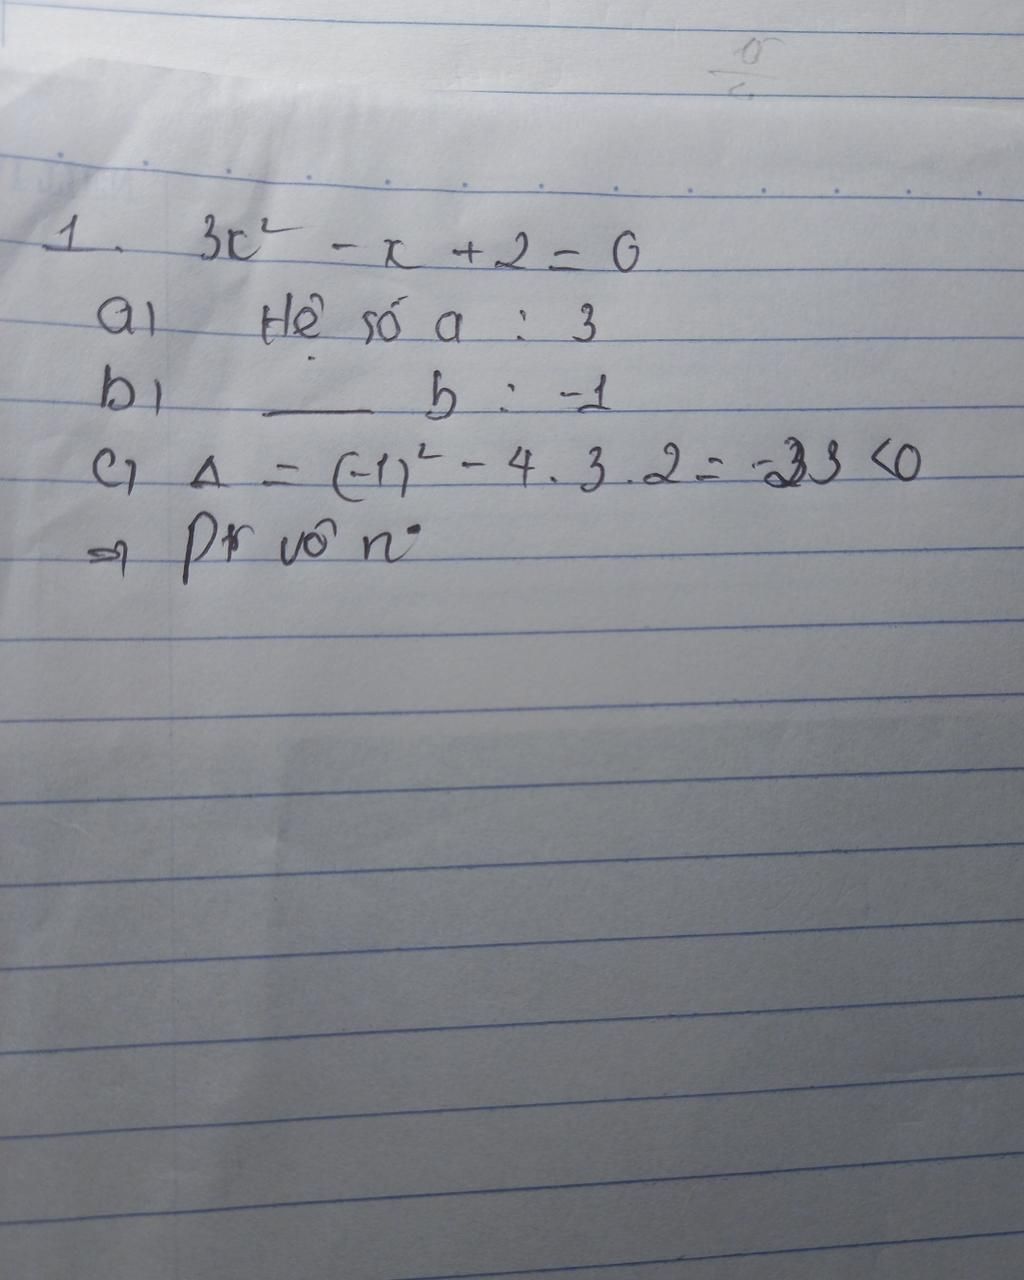 1. 3x² - x + 2 = 0
a) Hệ số a : 3
b) ___ b : -1
c) Δ = (-1)² - 4 . 3 . 2 = -23 < 0
⇒ Ptr vô n°